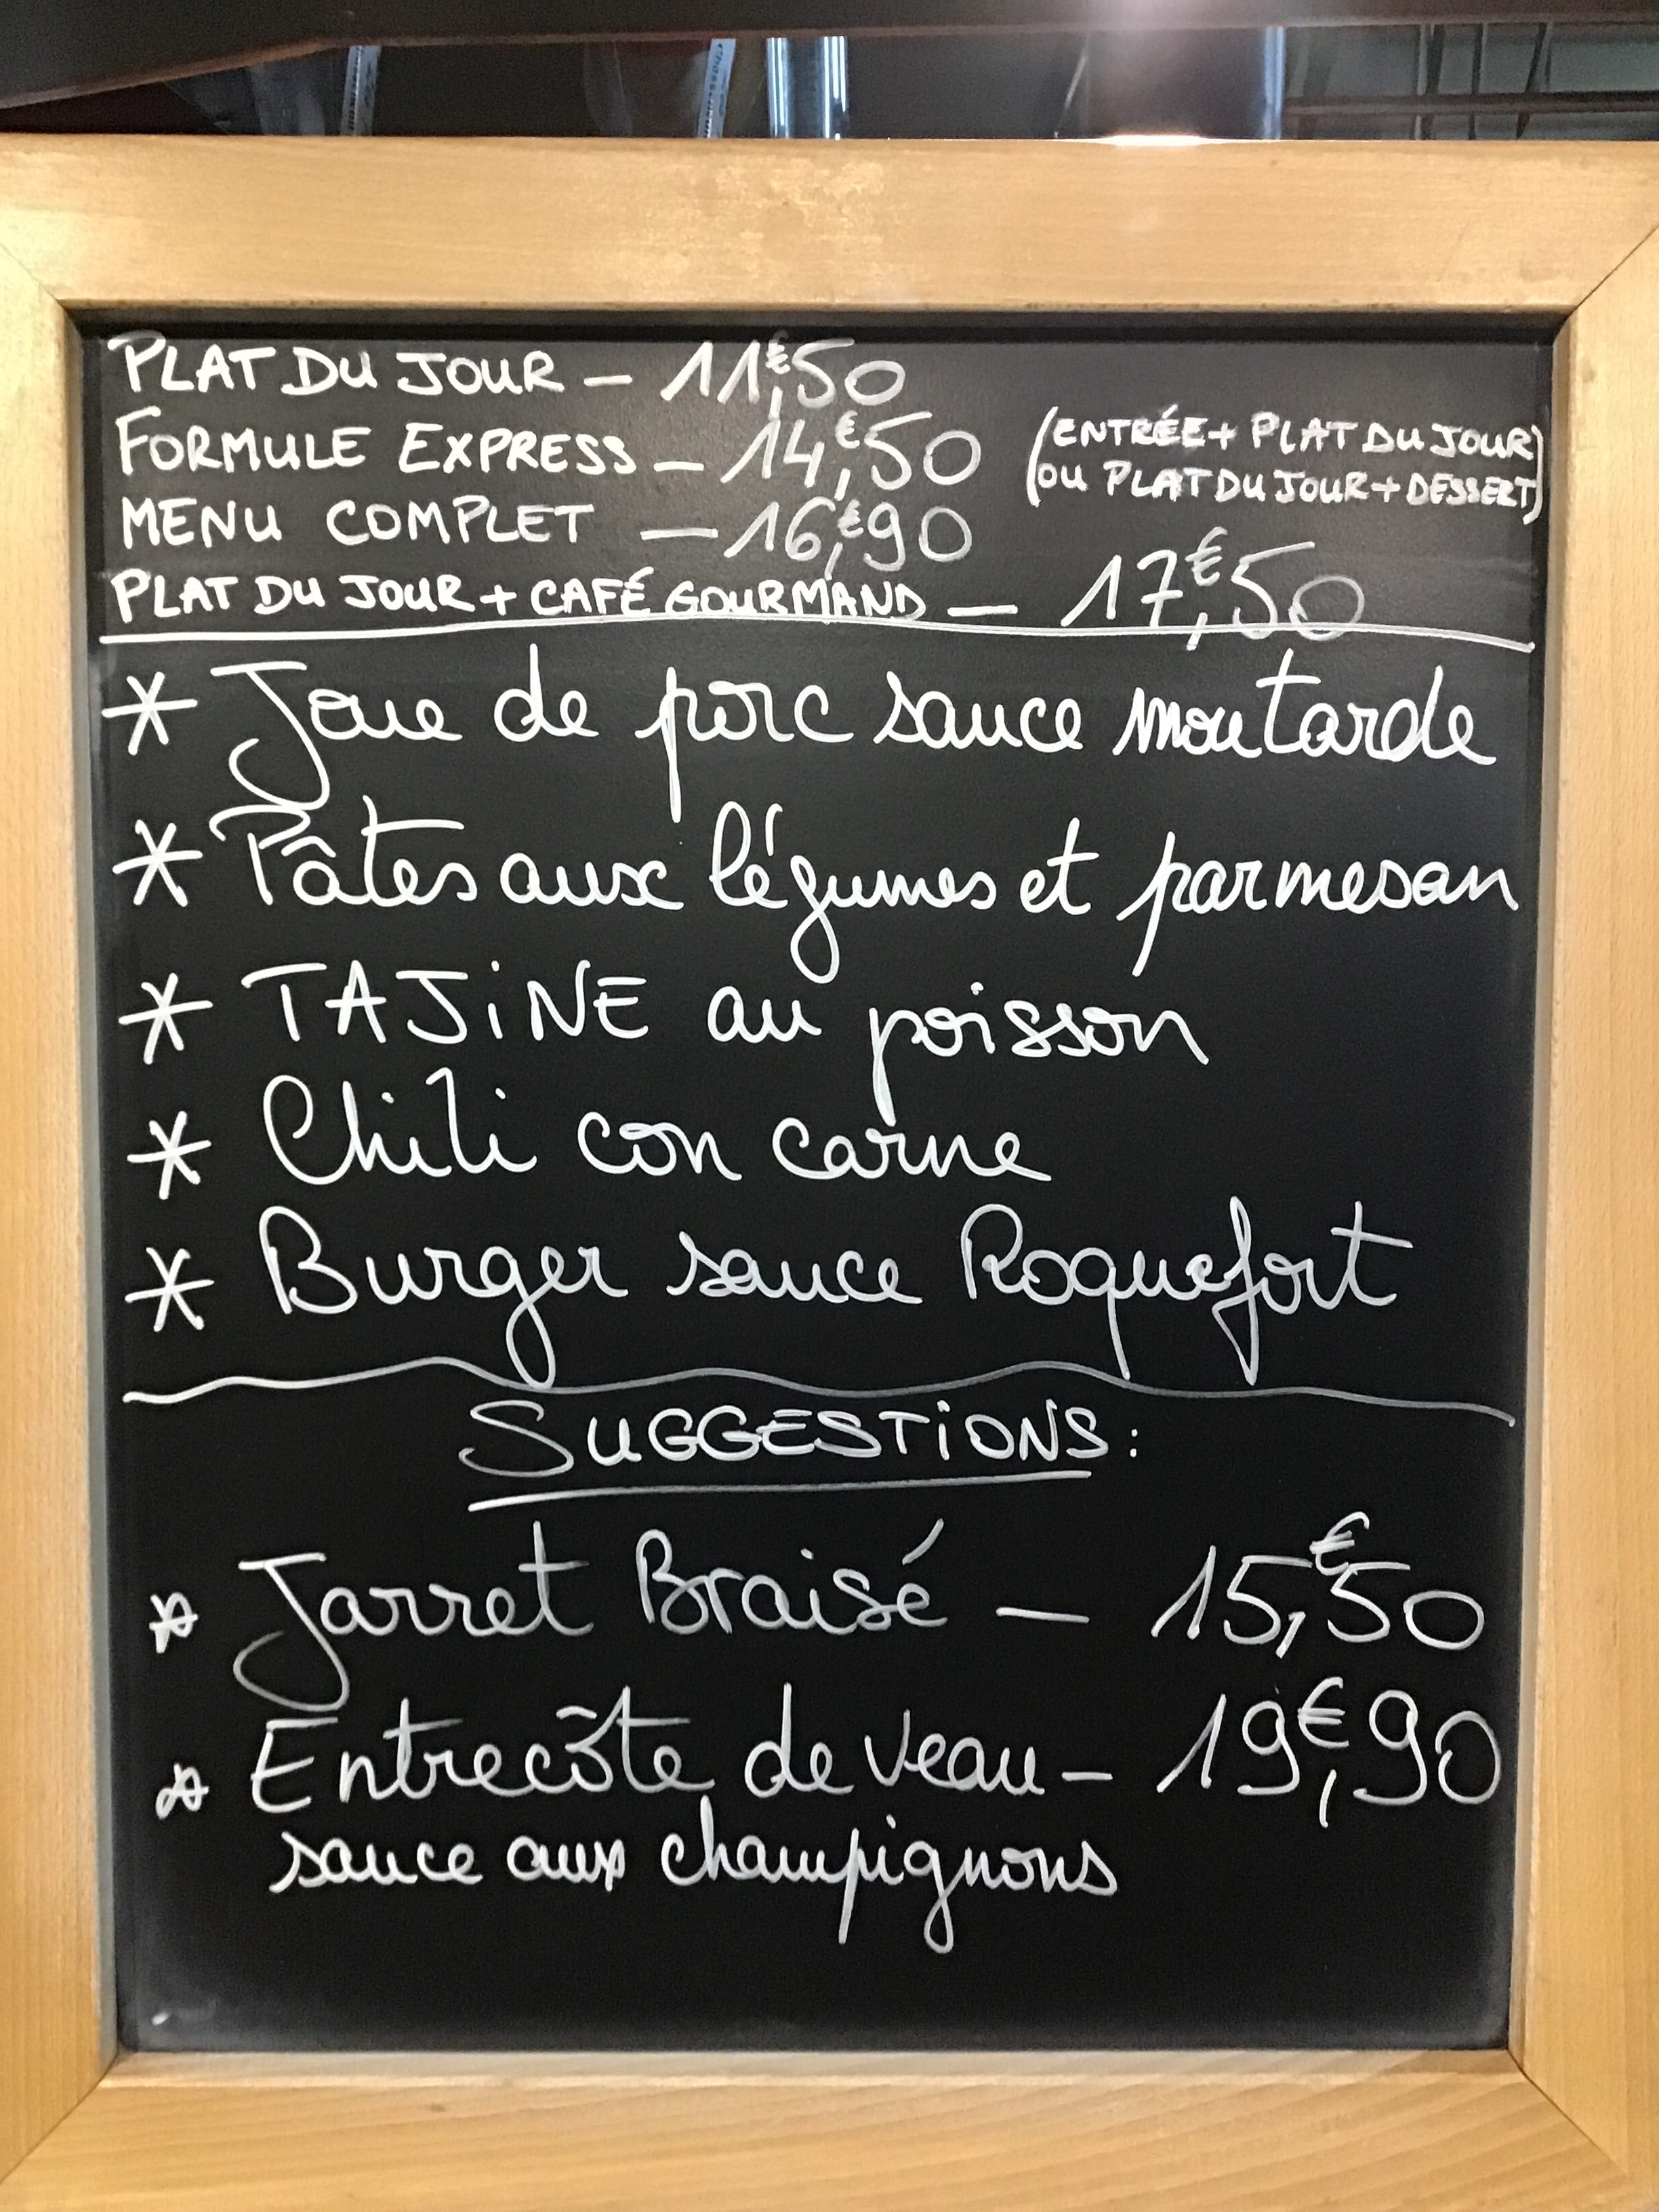 PLAT DU JOUR – 11,€50
FORMULE EXPRESS – 14,€50 (ENTRÉE + PLAT DU JOUR)
(OU PLAT DU JOUR + DESSERT)
MENU COMPLET – 16,€90
PLAT DU JOUR + CAFÉ GOURMAND – 17,€50
* Joue de porc sauce moutarde
* Pâtes aux légumes et parmesan
* TAJiNE au poisson
* Chili con carne
* Burger sauce Roquefort
SUGGESTiONS :
* Jarret Braisé – 15,€50
* Entrecôte de veau – 19,€90
sauce aux champignons